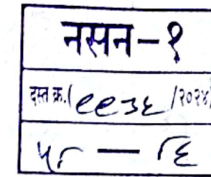 नसन-१
दस्त क्र. ११३६ /२०२४
५८ — ८६